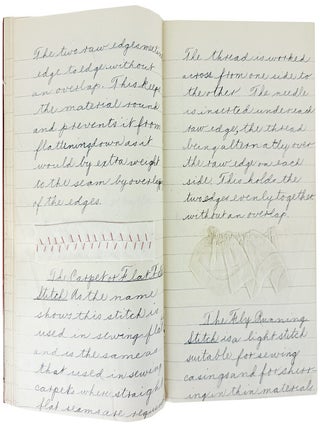 The two raw edges meet
edge to edge without
an overlap. This keeps
the material round
and prevents it from
flattening down as it
would by extra weight
to the seam by overlap
of the edges.
The Carpet or Flat
Stitch As the name
shows this stitch is
used in sewing flat
and is the same as
that used in sewing
carpets where straight
flat seams are
The thread is worked
across from one side to
the other. The needle
is inserted under each
raw edge, the thread
being alternatly over
the raw edge on each
side. This holds the
two edges evenly together
without an overlap.
The Fly Running
Stitch is a light stitch
suitable for sewing
casings and for shirr-
ing in thin materials